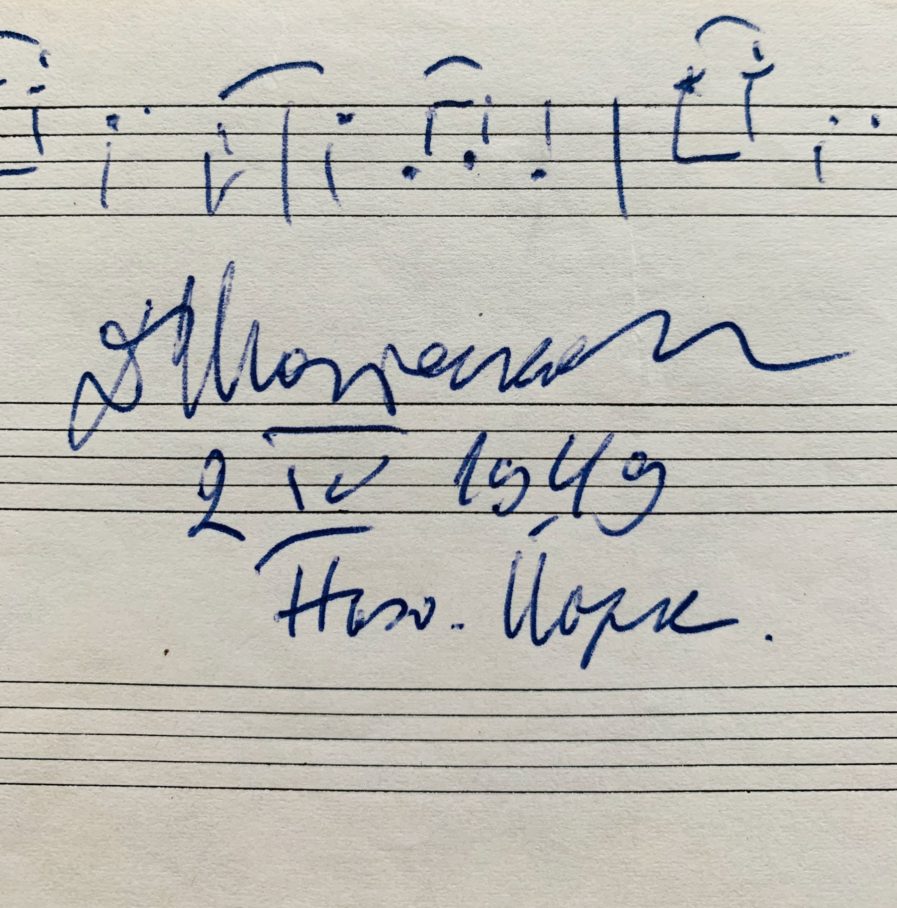 Д Шостакович
2 IV 1949
Нью-Йорк.